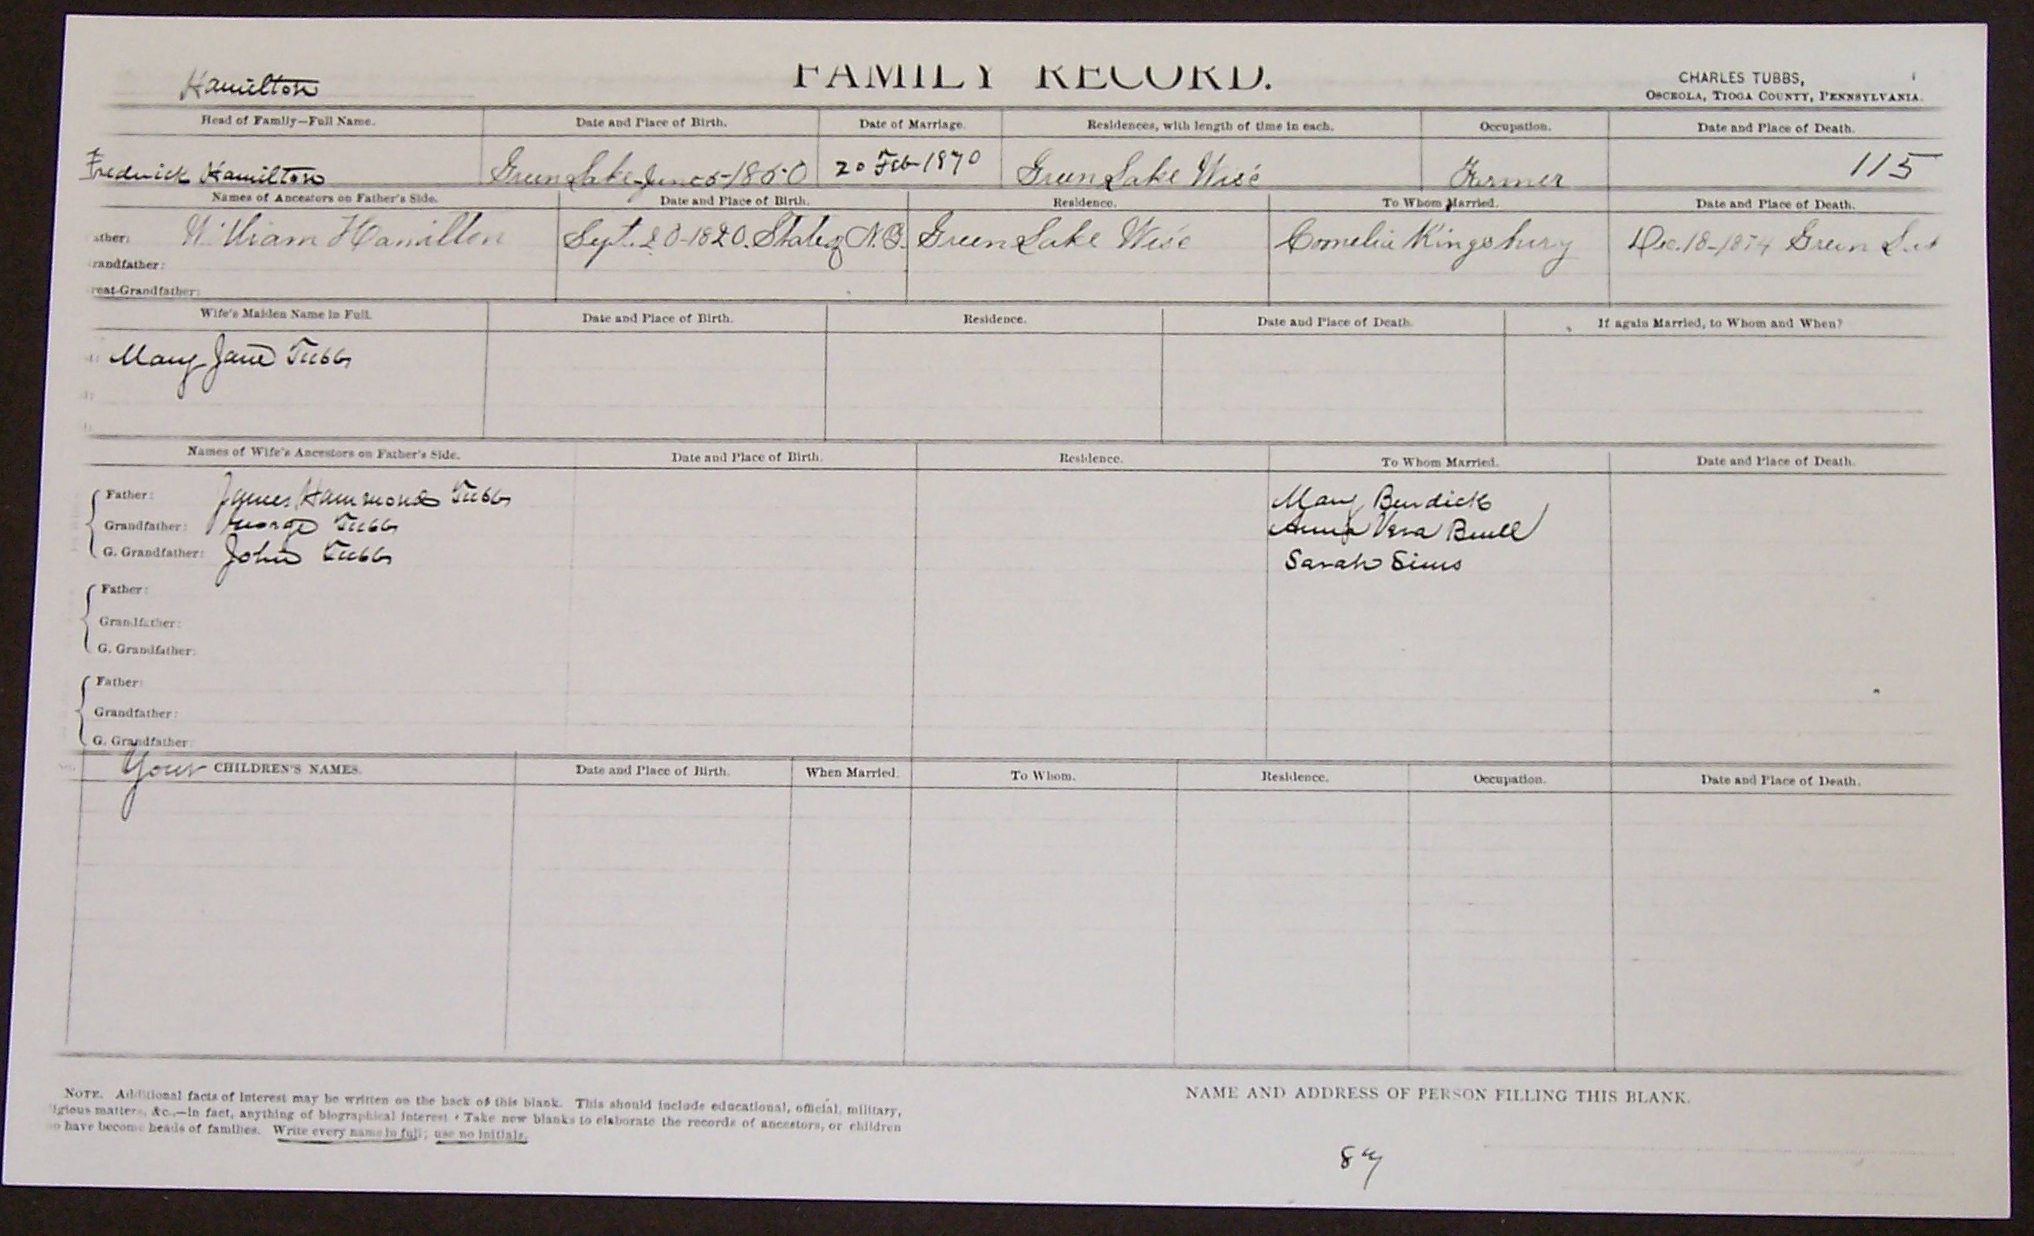 Hamilton
FAMILY RECORD.
CHARLES TUBBS,
OSCEOLA, TIOGA COUNTY, PENNSYLVANIA.
Head of Family—Full Name. Date and Place of Birth. Date of Marriage. Residences, with length of time in each. Occupation. Date and Place of Death.
Frederick Hamilton Green Lake June 5-1850 20 Feb-1870 Green Lake Wisc Farmer 115
Names of Ancestors on Father's Side. Date and Place of Birth. Residence. To Whom Married. Date and Place of Death.
ather: William Hamilton Sept. 20-1820. State of N.B. Green Lake Wisc Cornelia Kingsbury Dec. 18-1874 Green
randfather:
reat-Grandfather:
Wife's Maiden Name in Full. Date and Place of Birth. Residence. Date and Place of Death. If again Married, to Whom and When?
Mary Jane Tubbs
Names of Wife's Ancestors on Father's Side. Date and Place of Birth. Residence. To Whom Married. Date and Place of Death.
Father: James Hammond Tubbs Mary Burdick
Grandfather: George Tubbs Vera Buell
G. Grandfather: John Tubbs Sarah Sims
Father:
Grandfather:
G. Grandfather:
Father:
Grandfather:
G. Grandfather:
Your CHILDREN'S NAMES. Date and Place of Birth. When Married. To Whom. Residence. Occupation. Date and Place of Death.
NOTE. Additional facts of interest may be written on the back of this blank. This should include educational, official, military,
igious matters, &c.—in fact, anything of biographical interest. Take new blanks to elaborate the records of ancestors, or children
o have become heads of families. Write every name in full; use no initials.
NAME AND ADDRESS OF PERSON FILLING THIS BLANK.